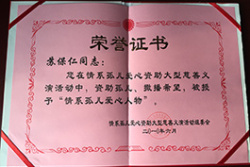 荣誉证书
苏保仁同志：
您在情系孤儿爱心资助大型慈善义
演活动中，资助孤儿，撒播希望，被授
予“情系孤儿爱心人物”。
情系孤儿爱心资助大型慈善义演活动组委会
二〇一〇年六月